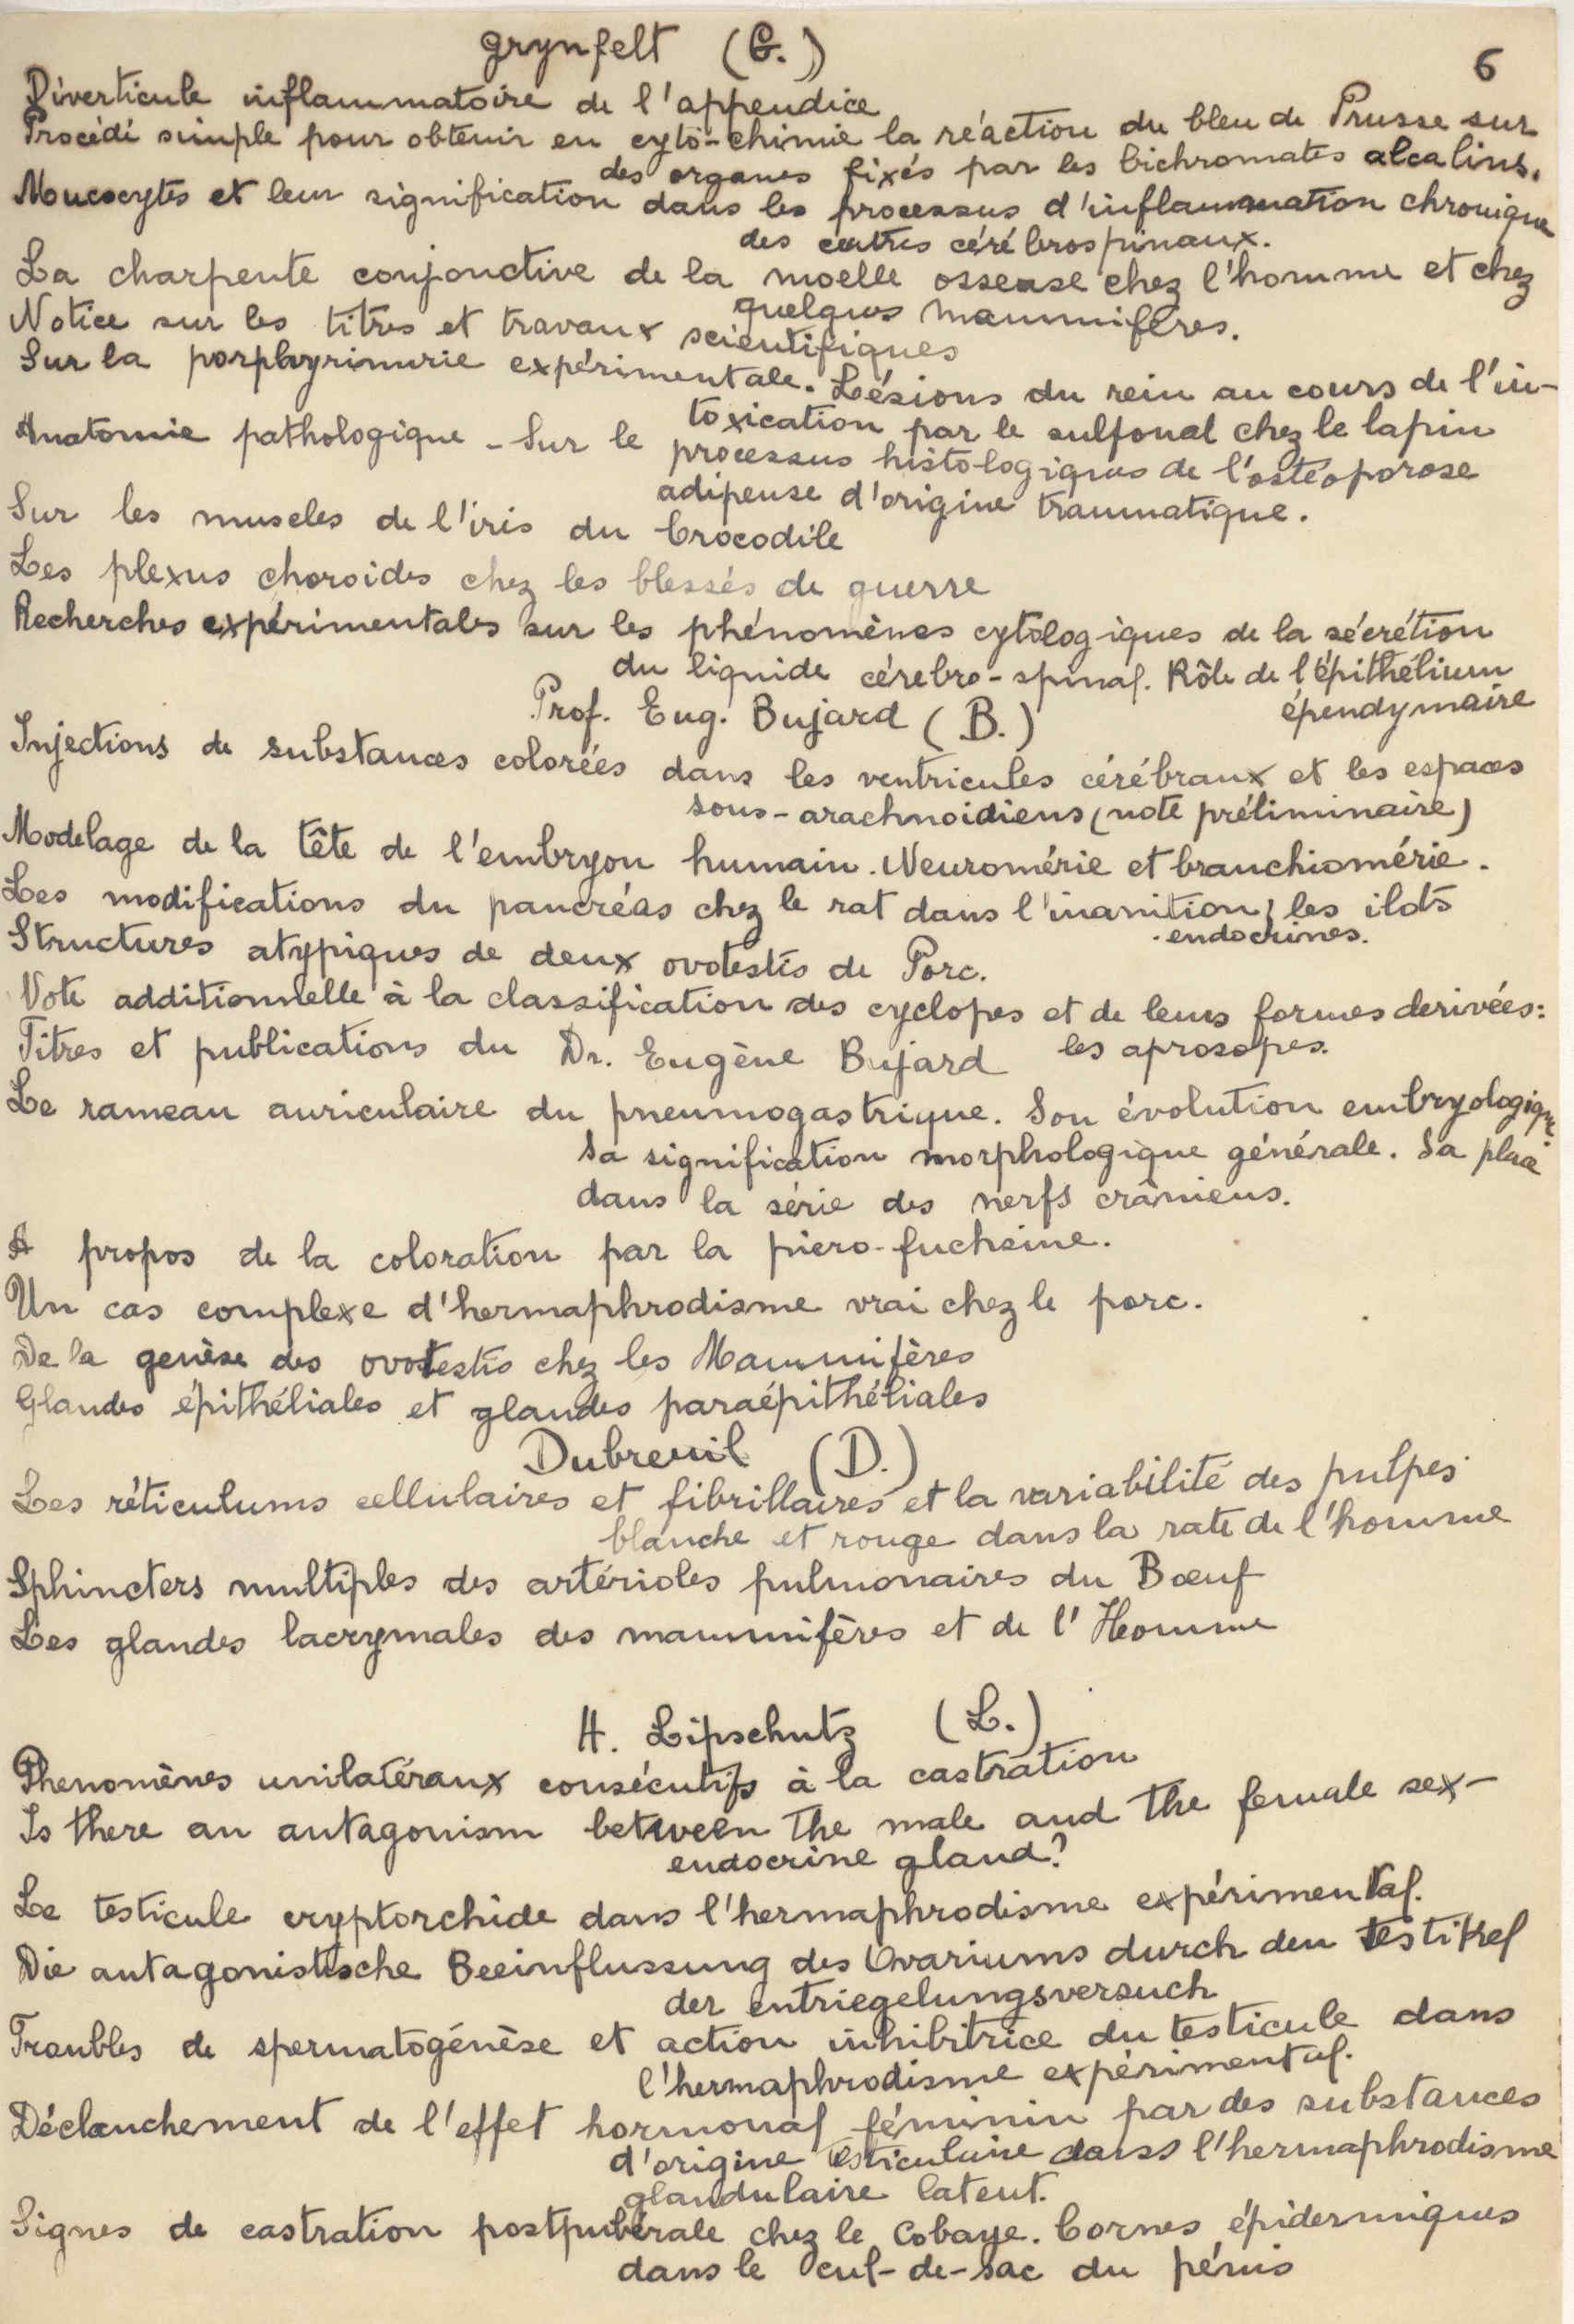 Grynfelt (G.)
6
Diverticule inflammatoire de l'appendice
Procédé simple pour obtenir en cyto-chimie la réaction du bleu de Prusse sur
des organes fixés par les bichromates alcalins.
Mucocytes et leur signification dans les processus d'inflammation chronique
des centres cérébrospinaux.
La charpente conjonctive de la moelle osseuse chez l'homme et chez
quelques mammifères.
Notice sur les titres et travaux scientifiques
Sur la porphyrinurie expérimentale. Lésions du rein au cours de l'in-
toxication par le sulfonal chez le lapin
Anatomie pathologique - Sur le processus histologiques de l'ostéoporose
adipeuse d'origine traumatique.
Sur les muscles de l'iris du Crocodile
Les plexus choroides chez les blessés de guerre
Recherches expérimentales sur les phénomènes cytologiques de la sécrétion
du liquide cérebro-spinal. Rôle de l'épithélium
épendymaire
Prof. Eug. Bujard (B.)
Injections de substances colorées dans les ventricules cérébraux et les espaces
sous-arachnoidiens (note préliminaire)
Modelage de la tête de l'embryon humain. Neuromérie et branchiomérie.
Les modifications du pancréas chez le rat dans l'inanition; les ilots
endocrines.
Structures atypiques de deux ovotestis de Porc.
Note additionnelle à la classification des cyclopes et de leurs formes derivées:
les aprosopes.
Titres et publications du Dr. Eugène Bujard
Le rameau auriculaire du pneumogastrique. Son évolution embryologique.
Sa signification morphologique générale. Sa place
dans la série des nerfs crâniens.
A propos de la coloration par la picro-fuchsine.
Un cas complexe d'hermaphrodisme vrai chez le porc.
De la genèse des ovotestis chez les Mammifères
Glandes épithéliales et glandes paraépithéliales
Dubreuil (D.)
Les réticulums cellulaires et fibrillaires et la variabilité des pulpes
blanche et rouge dans la rate de l'homme
Sphincters multiples des artérioles pulmonaires du Bœuf
Les glandes lacrymales des mammifères et de l'Homme
H. Lipschutz (L.)
Phenomènes unilatéraux consécutifs à la castration
Is there an antagonism between the male and the female sex-
endocrine gland?
Le testicule cryptorchide dans l'hermaphrodisme expérimental.
Die antagonistische Beeinflussung des Ovariums durch den Testikel
der entriegelungsversuch
Troubles de spermatogénèse et action inhibitrice du testicule dans
l'hermaphrodisme expérimental.
Déclanchement de l'effet hormonal féminin par des substances
d'origine testiculaire dans l'hermaphrodisme
glandulaire latent.
Signes de castration postpubérale chez le Cobaye. Cornes épidermiques
dans le cul-de-sac du pénis